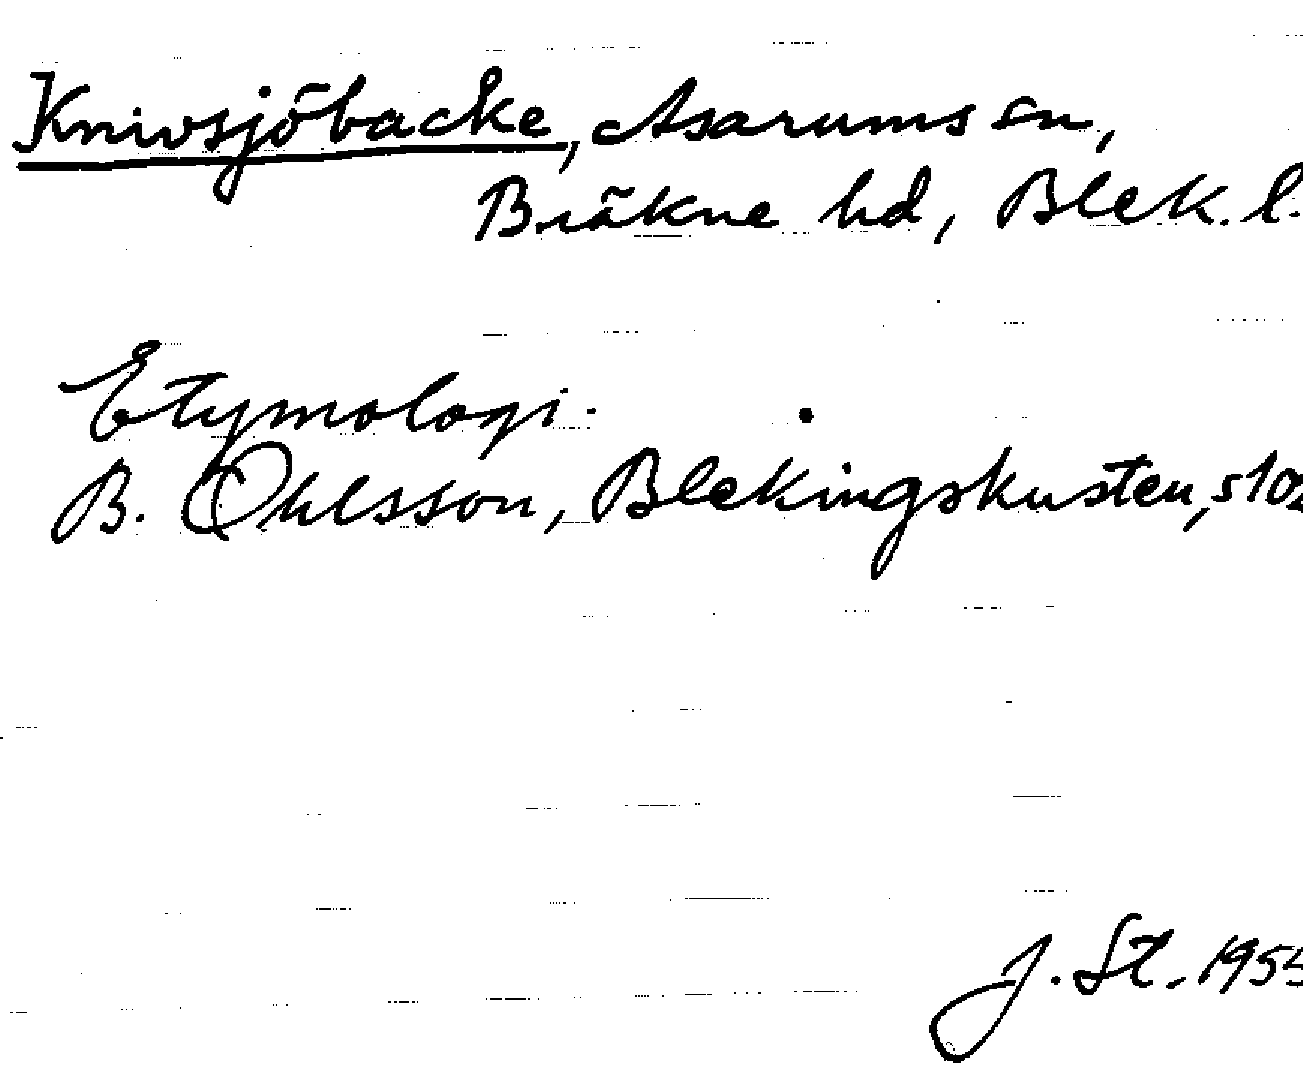 Knivsjöbacke, Asarums sn,
Bräkne hd, Blek. l.
Etymologi.
B. Ohlsson, Blekingskusten, s 102
J. St. 1955